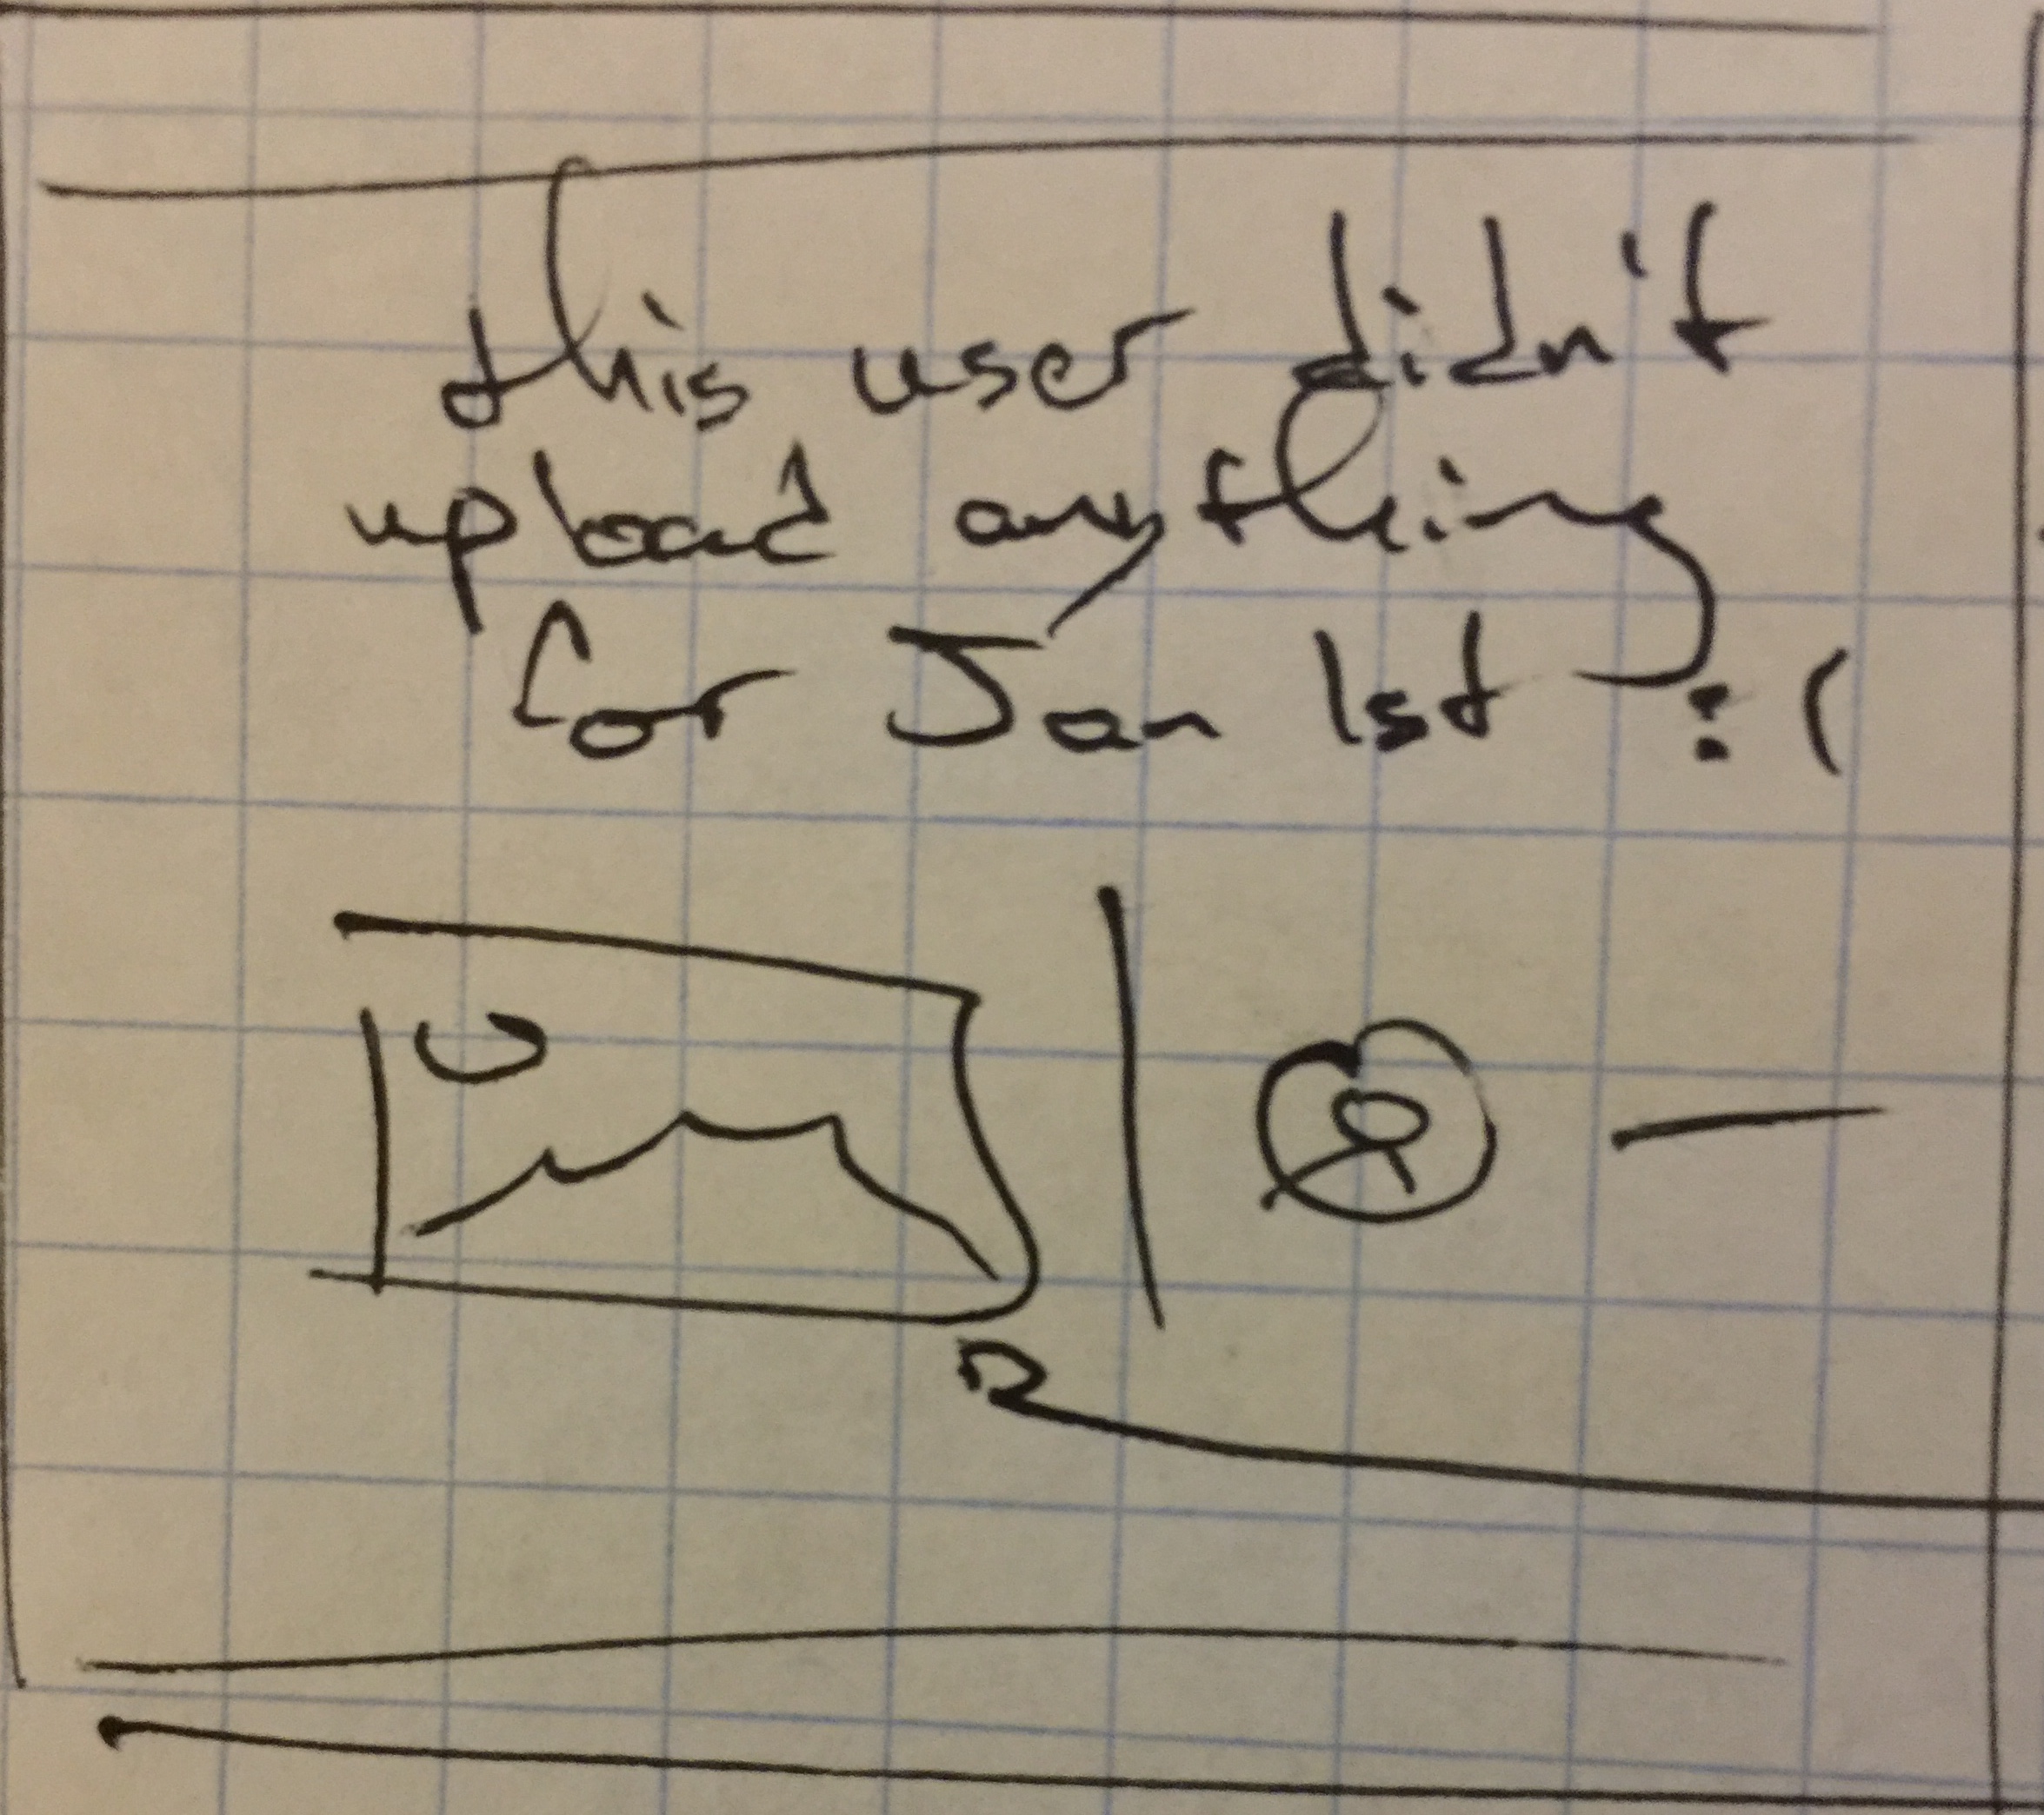 this user didn't
upload anything
for Jan 1st :(